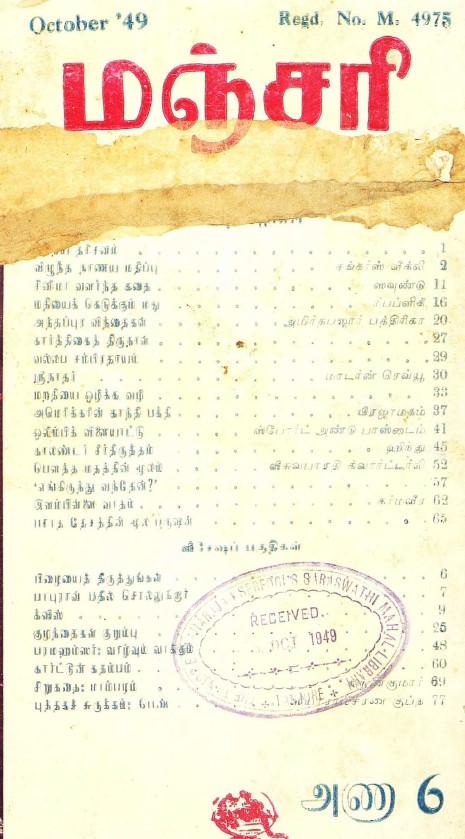 October '49 Regd. No. M. 4975
மஞ்சரி
தரிசனம் 1
விழுந்த நாணய மதிப்பு சங்கர்ஸ் வீக்லி 2
சினிமா வளர்ந்த கதை ஸவுண்டு 11
மதியைக் கெடுக்கும் மது ரிபப்ளிக் 16
அந்தப்புர வித்தைகள் அமிர்தபஜார் பத்திரிகா 20
கார்த்திகைத் திருநாள் 27
வல்லப சம்பிரதாயம் 29
ஸ்ரீநாதர் மாடர்ன் ரெவ்யூ 30
மறதியை ஒழிக்க வழி 33
அமெரிக்கரின் காந்தி பக்தி பிரஜாமதம் 37
ஒலிம்பிக் விளையாட்டு ஸ்போர்ட் அண்டு பாஸ்டைம் 41
காலண்டர் சீர்திருத்தம் ஹிந்து 45
பௌத்த மதத்தின் மூலம் விசுவபாரதி க்வார்ட்டர்லி 52
'எங்கிருந்து வந்தேன்?' 57
இளம்பிள்ளை வாதம் கர்மவீர 62
பாரத தேசத்தின் மூல புருஷன் 65
விசேஷப் பகுதிகள்
பிழையைத் திருத்துங்கள் 6
பாபுராவ் பதில் சொல்லுகிறார் 7
க்விஸ் 9
குழந்தைகள் குறும்பு 25
பரமஹம்ஸர்: வாழ்வும் வாக்கும் 48
கார்ட்டூன் கதம்பம் 60
சிறுகதை: மாம்பழம் குமார் 69
புத்தகச் சுருக்கம்: பெண் குப்த 77
SERFOJI'S SARASWATHI MAHAL LIBRARY
RECEIVED
OCT 1949
TANJORE
அணா 6